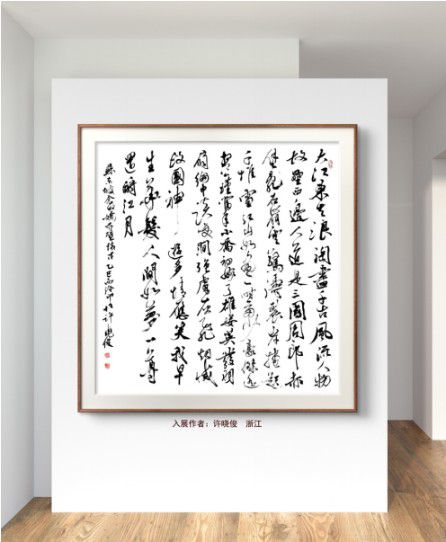 大江東去浪淘盡千古風流人物
故壘西邊人道是三國周郎赤
壁亂石崩雲驚濤裂岸捲起
千堆雪江山如畫一時多少豪傑遙
想公瑾當年小喬初嫁了雄姿英發羽
扇綸巾談笑間強虜灰飛烟滅
故國神遊多情應笑我早
生華髮人間如夢一尊
還酹江月
蘇東坡念奴嬌赤壁懷古乙巳許曉俊
入展作者：许晓俊 浙江